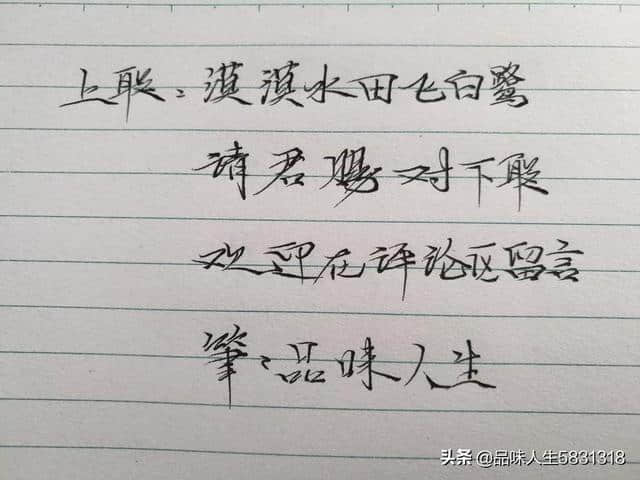 上联：漠漠水田飞白鹭
请君赐对下联
欢迎在评论区留言
筆：品味人生
头条 @品味人生5831318